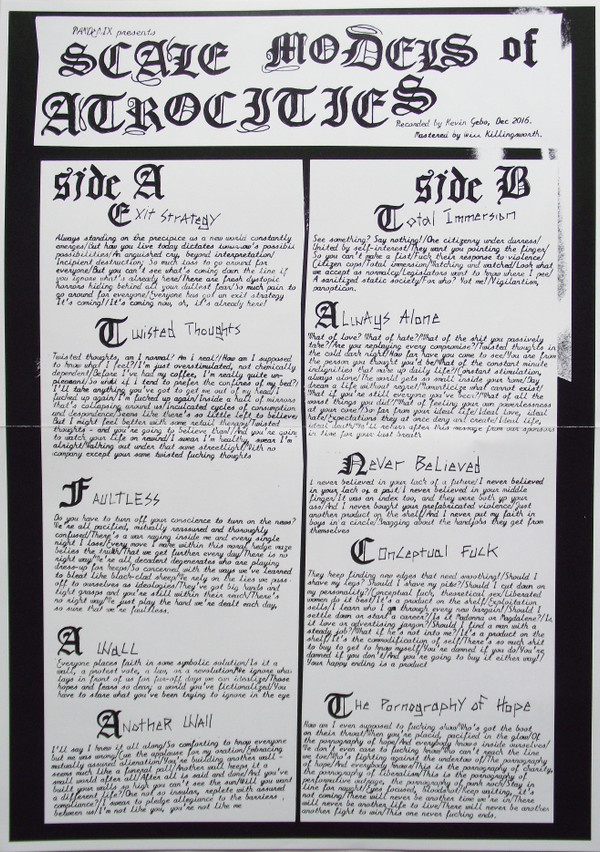 PANDEMIX presents
SCALE MODELS of
ATROCITIES
Recorded by Kevin Gebo, Dec 2016.
Mastered by Will Killingsworth.
side A
Exit Strategy
Always standing on the precipice as a new world constantly
emerges/But how you live today dictates tomorrow's possibil
possibilities/An anguished cry, beyond interpretation/
Incipient destruction/So much loss to go around for
everyone/But you can't see what's coming down the line if
you ignore what's already here/There are fresh dystopic
horrors hiding behind all your dullest fears/So much pain to
go around for everyone/Everyone has got an exit strategy
It's coming/It's coming now, or, it's already here!
Twisted Thoughts
Twisted thoughts, am I normal? Am I real?/How am I supposed
to know what I feel?/I'm just overstimulated, not chemically
dependent/Before I've had my coffee, I'm really quite un-
pleasant/So what if I tend to prefer the confines of my bed?/
I'll take anything you've got to get me out of my head/I
fucked up again/I'm fucked up again/Inside a hall of mirrors
that's collapsing around us/Inculcated cycles of consumption
and dependence/Seems like there's so little left to believe
But I might feel better with some retail therapy/Twisted
thoughts - and you're going to believe them/And you're going
to watch your life on rewind/I swear I'm healthy, swear I'm
alright/Nothing out under that same streetlight/With no
company except your some twisted fucking thoughts
Faultless
Do you have to turn off your conscience to turn on the news?
We're all pacified, mutually reassured and thoroughly
confused/There's a war raging inside me and every single
night I lose/Every move I make within this moral hedge maze
belies the truth/That we get further every day/There is no
right way/We're all decadent degenerates who are playing
dress-up for keeps/So concerned with the ways we've learned
to bleat like black-clad sheep/We rely on the lies we pass
off to ourselves as ideologies/They've got big hands and
tight grasps and you're still within their reach/There's
no right way/We just play the hand we're dealt each day,
so sure that we're faultless.
A Wall
Everyone places faith in some symbolic solution/Is it a
wall, a protest vote, a law, or a revolution/We ignore what
lays in front of us for far-off days we can idealize/Those
hopes and fears so dear, a world you've fictionalized/You
have to stare what you've been trying to ignore in the eye
Another Wall
I'll say I knew it all along/So comforting to know everyone
but me was wrong/Cue the applause for my oration/Embracing
mutually assured alienation/You're building another wall -
seems much like a funeral pall/Another wall keeps it a
small world after all/After all is said and done/And you've
built your walls so high you can't see the sun/Will you want
a different life?/One not so insular, replete with assured
compliance?/I swear to pledge allegiance to the barriers
between us/I'm not like you, you're not like me
side B
Total Immersion
See something? Say nothing!/One citizenry under duress/
United by self-interest/They want you pointing the finger/
So you can't make a fist/Fuck their response to violence/
Citizen cops/Total immersion/Watching and watched/Look what
we accept as normalcy/Legislators want to know where I pee/
A sanitized static society/For who? Not me!/Vigilantism,
panopticon.
Always Alone
What of love? What of hate?/What of the shit you passively
take?/Are you replaying every compromise?/Twisted thoughts in
the cold dark night/How far have you come to see/You are from
the person you thought you'd be/What of the constant minute
indignities that make up daily life?/Constant stimulation,
always alone/The world gets so small inside your home/Day
dream a life without regret/Romanticize what cannot exist/
What if you're still everyone you've been?/What of all the
worst things you did?/What of feeling your own powerlessness
at your core/So far from your ideal life/Ideal love, ideal
hate/Expectations they at once deny and create/Ideal life,
ideal death/We'll return after this message from our sponsors
in time for your last breath
Never Believed
I never believed in your lack of a future/I never believed
in your lack of a past/I never believed in your middle
finger/It was an index too, and they were both up your
ass/And I never bought your prefabricated violence/Just
another product on the shelf/And I never put my faith in
boys in a circle/Bragging about the handjobs they get from
themselves
Conceptual Fuck
They keep finding new edges that need smoothing!/Should I
shave my legs? Should I shave my pits?/Should I cut down on
my personality?/Conceptual fuck, theoretical sex/Liberated
women do it best/It's a product on the shelf/Exploitation
sells/I learn who I am through every new bargain/Should I
settle down or start a career?/Is it Madonna or Magdalene?/Is
it love or advertising jargon?/Should I find a man with a
steady job?/What if he's not into me?/It's a product on the
shelf/It's the commodification of self/There's so much shit
to buy to get to know myself/You're damned if you do/You're
damned if you don't/And you're going to buy it either way!/
Your happy ending is a product
The Pornography of Hope
How am I even supposed to fucking show/Who's got the boot
on their throat/When you're placid, pacified in the glow/Of
the pornography of hope/And everybody knows inside ourselves/
We don't even care to fucking know/Who can't reach the line
we tow/Who's fighting against the undertow/Of the pornography
of hope/And everybody knows/This is the pornography of charity,
the pornography of liberalism/This is the pornography of
performative outrage, the pornography of punk rock/Stay in
line for naught/Eyes focused, bloodshot/Keep waiting, it's
not coming/There will never be another time we're in/There
will never be another life to live/There will never be another
another fight to win/This one never fucking ends.